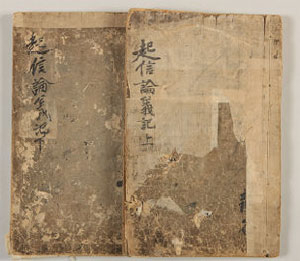 起信論義記上
起信論義記下